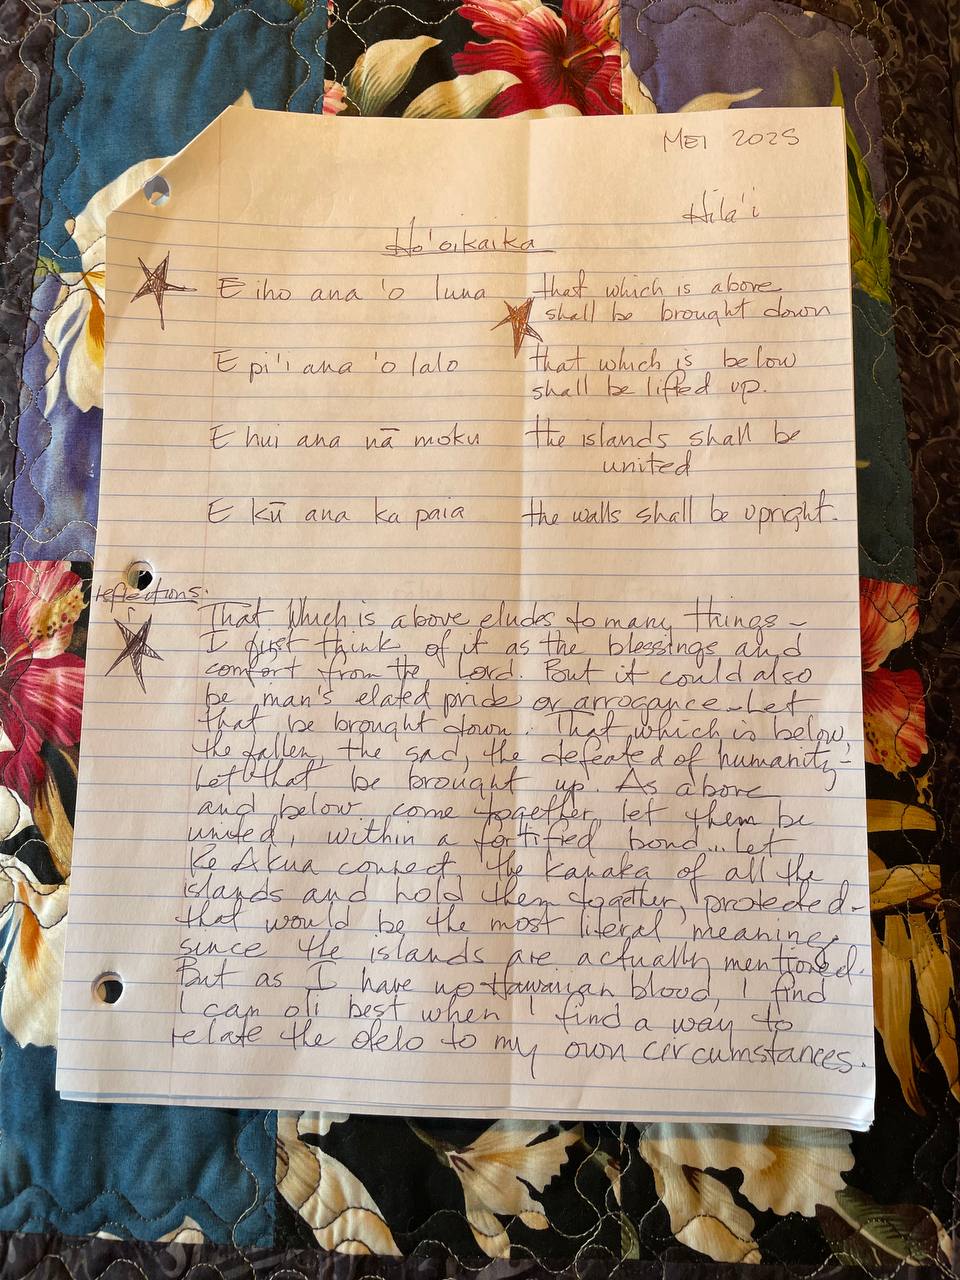 MEI 2025
Hila'i
Ho'oikaika
E iho ana 'o luna that which is above
shall be brought down
E pi'i ana 'o lalo that which is below
shall be lifted up.
E hui ana nā moku the islands shall be
united
E kū ana ka paia the walls shall be upright.
reflections:
That which is above eludes to many things –
I first think of it as the blessings and
comfort from the Lord. But it could also
be man's elated pride or arrogance – Let
that be brought down. That which is below,
the fallen, the sad, the defeated of humanity –
Let that be brought up. As above
and below come together, let them be
united, within a fortified bond... Let
Ke Akua connect, the kanaka of all the
islands and hold them together, protected –
that would be the most literal meaning,
since the islands are actually mentioned.
But as I have no Hawaiian blood, I find
I can oli best when I find a way to
relate the ōlelo to my own circumstances.